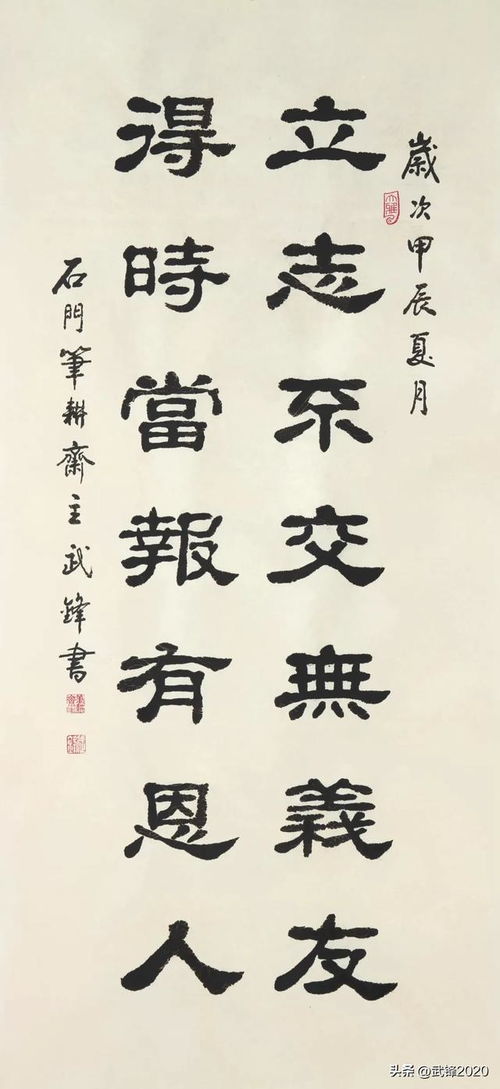 歲次甲辰夏月
立志不交無義友
得時當報有恩人
石門筆耕齋主武鋒書
头条 @武锋2020